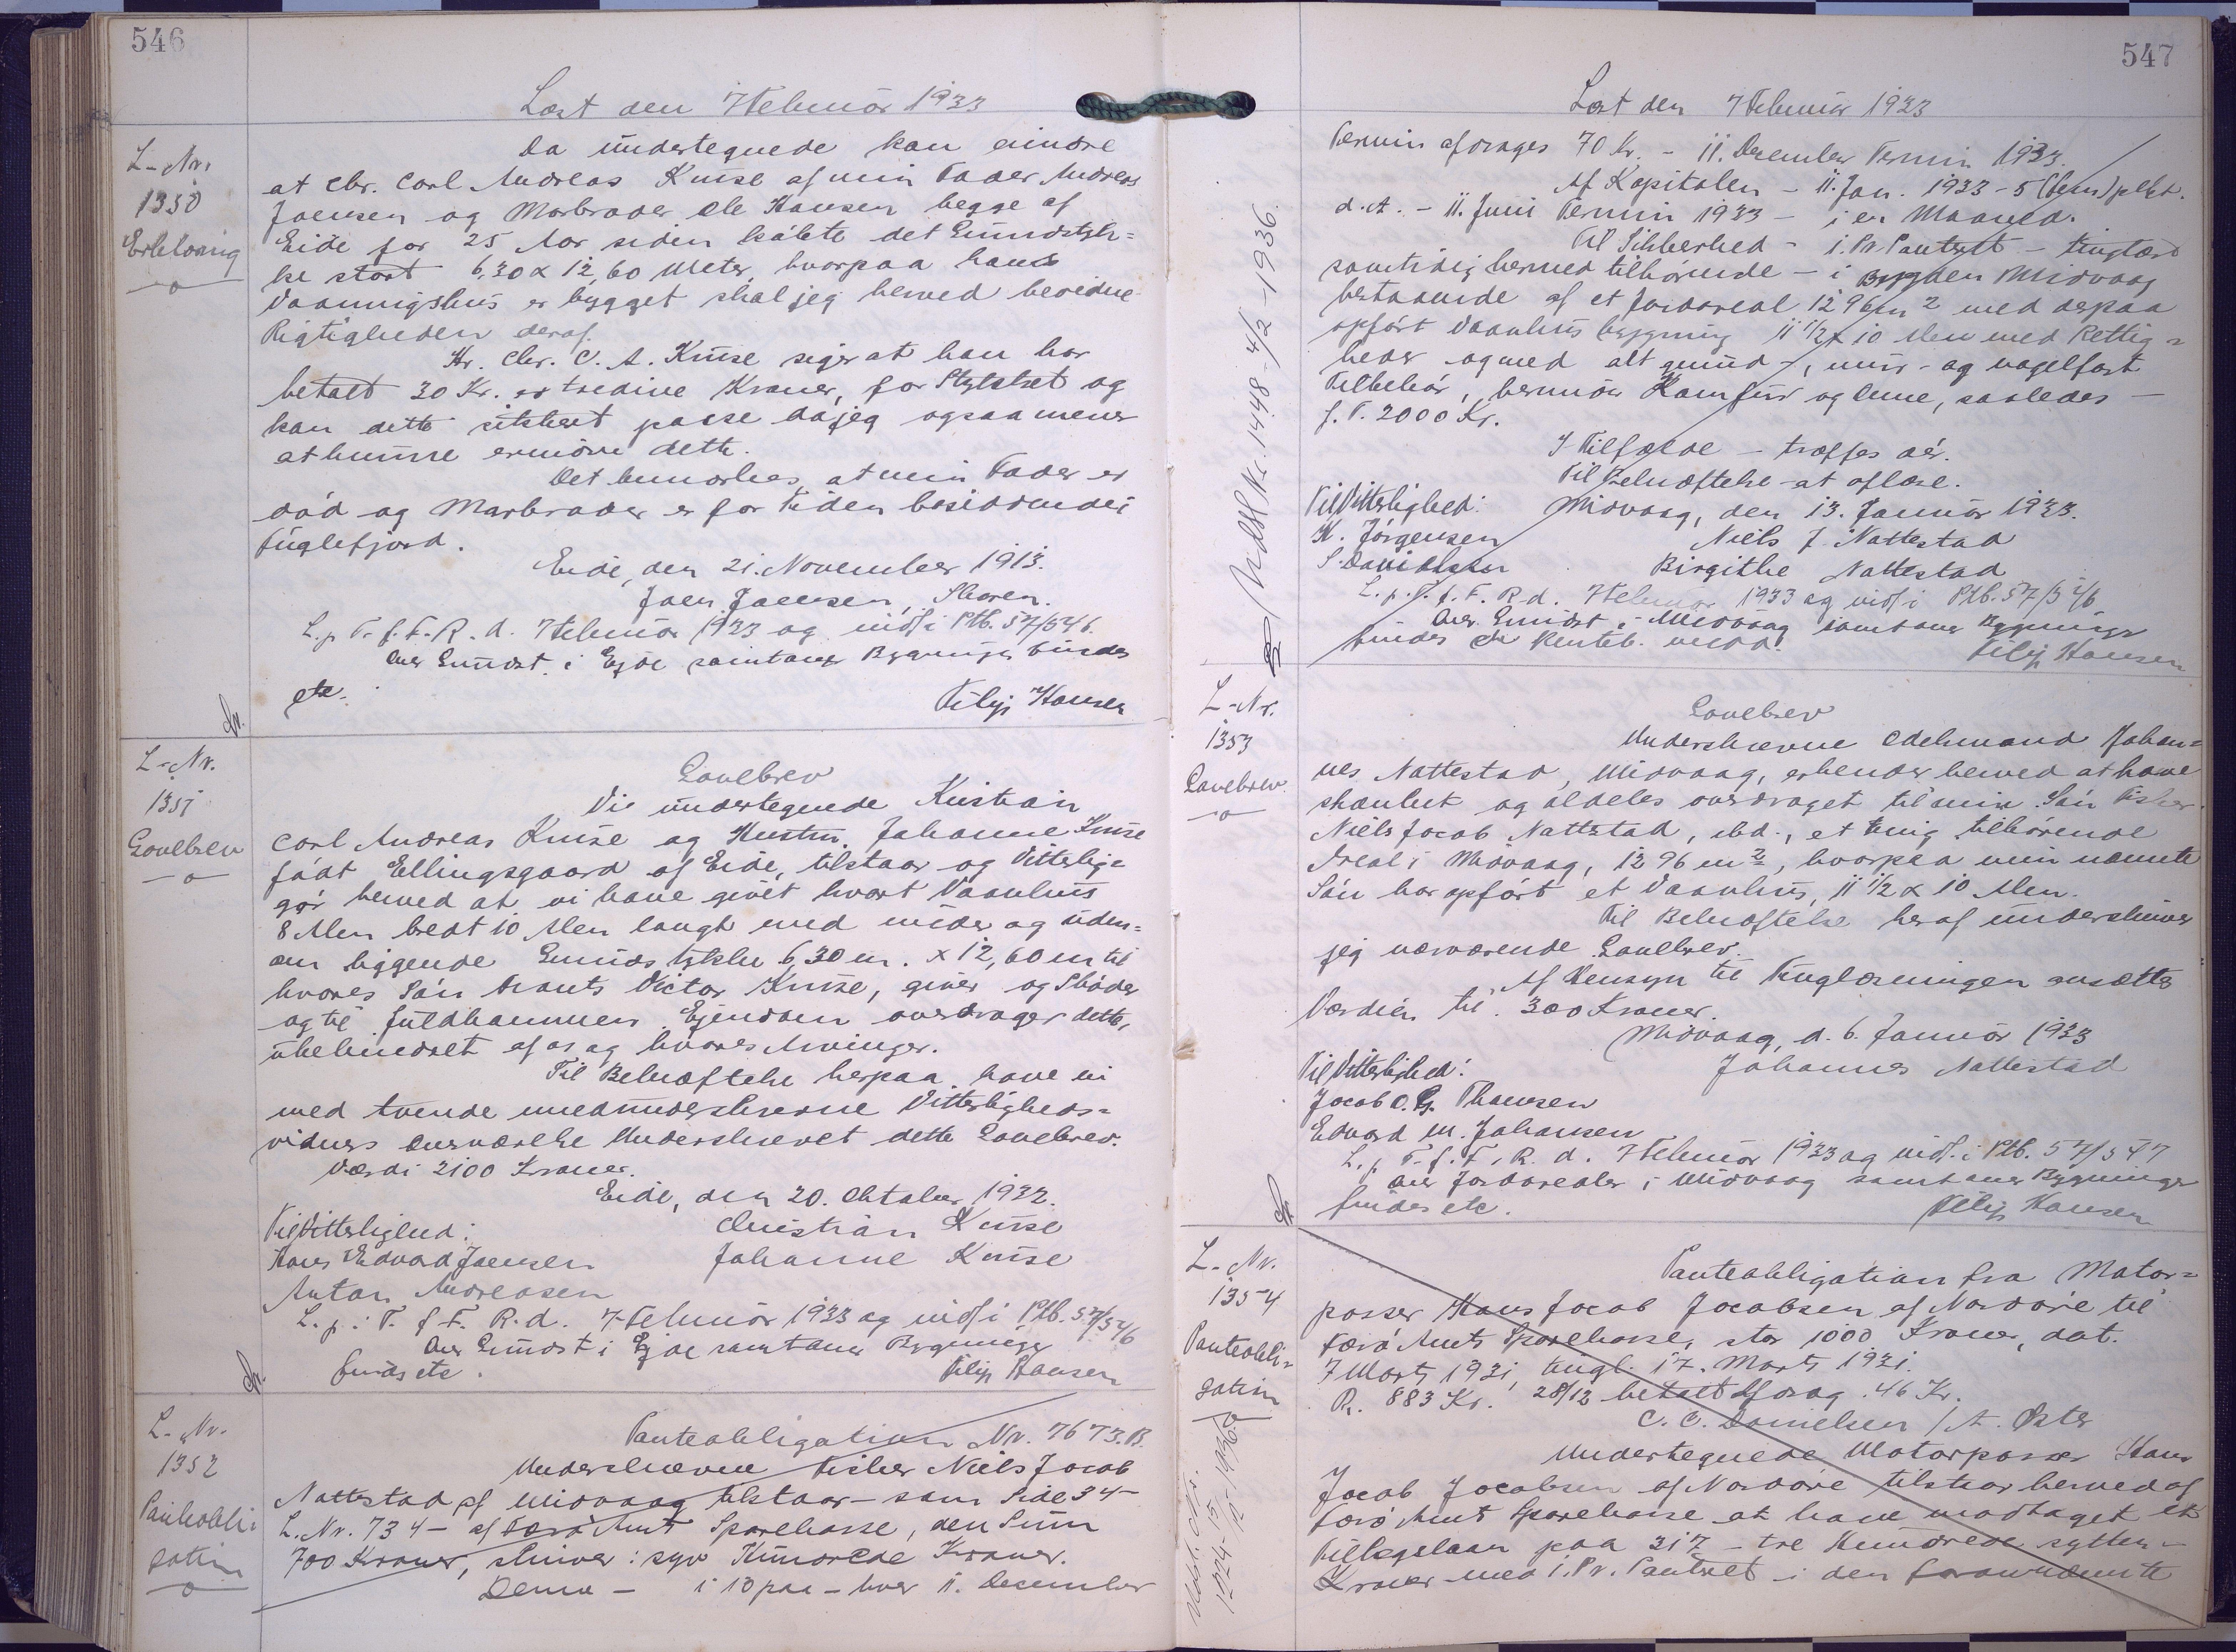 546
Læst den 7 Februar 1933
L-Nr.
1350
Erklæring
Da undertegnede kan erindre
at Chr. Carl Andreas Kruse af min Fader Andreas
Joensen og Morbroder Ole Hansen begge af
Eide for 25 Aar siden købte det Grundstyk=
ke stort 6,30 x 12,60 Meter, hvorpaa hans
Vaaningshus er bygget skal jeg herved bevidne
Rigtigheden deraf.
Hr. Chr. C. A. Kruse siger at han har
betalt 30 Kr. er tredive Kroner, for Stykket og
kan dette sikkert passe da jeg ogsaa mener
at kunne erindre dette.
Det bemærkes, at min Fader er
død og Morbroder er for Tiden bosiddende i
Fuglefjord.
Eide, den 21. November 1913.
Joen Joensen, Skoren.
L. p. T. f. F. R. d. 7 Februar 1933 og indf. i Ptb. 57/546.
Over Grundst. i Ejde samt over Bygninger findes
etc.
Filip Hansen
L-Nr.
1351
Gavebrev
Gavebrev
Vi undertegnede Kristian
Carl Andreas Kruse og Hustru Johanne Kruse
født Ellingsgaard af Eide, tilstaar og Vitterlig=
gør herved at vi have givet hvort Vaanhus
8 Alen bredt 10 Alen langt med under og uden=
om liggende Grundstykke 6,30 m. x 12,60 m til
vores Søn Frants Victor Kruse, giver og Skøder
og til Fuldkommen Ejendom overdrager dette,
ubehindret af os og vores Arvinger.
Til Bekræftelse herpaa have vi
med tvende medunderskrevne Vitterligheds=
vidners Overværelse Underskrevet dette Gavebrev.
Værdi 2100 Kroner.
Eide, den 20. Oktober 1932.
Til Vitterlighed:
Christian Kruse
Hans Edvard Joensen
Johanne Kruse
Anton Andreasen
L. p. T. f. F. R. d. 7 Februar 1933 og indf. i Ptb. 57/546
Over Grundst i Ejde samt over Bygninger
findes etc.
Filip Hansen
L-Nr.
1352
Panteobli
gation
Panteobligation Nr. 7673.B.
Underskrevne Fisker Niels Jacob
Nattestad af Midvaag tilstaar - som Side 34 -
L. Nr. 734 - af Færø Amts Sparekasse, den Sum
700 Kroner, skriver: syv Hundrede Kroner.
Denne - i 10 paa - hver 11. December
547
Læst den 7 Februar 1933
Termin afdrages 70 Kr. - 11. December Termin 1933.
Af Kapitalen - 11. Jan. 1933 - 5 (fem) pCt.
d. A. - 11. Juni Termin 1933 - i en Maaned.
Til Sikkerhed - 1. Pr. Panteret - tinglæst
samtidig hermed tilhørende - i Bygden Midvaag
bestaaende af et Jordareal 1296 m2 med derpaa
opført Vaanhus bygning 11 1/2 x 10 Alen med Rettig=
heder og med alt grund-, mur- og nagelfast
Tilbehør, herunder Komfur og Ovne, saaledes -
f. T. 2000 Kr.
I Tilfælde - træffes dér.
Til Bekræftelse - at aflæse.
Til Vitterlighed:
Midvaag, den 13. Januar 1933.
K. Jørgensen
Niels J. Nattestad
S. Davidsen
Birgithe Nattestad
L. p. T. f. F. R. d. 7 Februar 1933 og indf. i Ptb. 57/546
Over Grundst i Midvaag samt over Bygninger
findes
Filip Hansen
Udsl. Nr. 1448 - 4/2 - 1936.
L-Nr.
1353
Gavebrev
Gavebrev
Underskrevne Odelsmand Johan=
nes Nattestad, Midvaag, erkender herved at have
skænket og aldeles overdraget til min Søn Fisker
Niels Jacob Nattestad, ibd., et mig tilhørende
Areal i Midvaag, 1296 m2, hvorpaa min nævnte
Søn har opført et Vaanhus, 11 1/2 x 10 Alen.
Til Bekræftelse heraf underskriver
jeg nærværende Gavebrev.
Af Hensyn til Tinglæsningen ansættes
Værdien til 300 Kroner.
Midvaag, d. 6. Januar 1933
Til Vitterlighed:
Johannes Nattestad
Jacob O. G. Thomsen
Edvard M. Johansen
L. p. T. f. F. R. d. 7 Februar 1933 og indf. i Ptb. 57/547
Over Jordarealer i Midvaag samt over Bygninger
findes etc.
Filip Hansen
L-Nr.
1354
Panteobli=
gation
Panteobligation fra Motor=
passer Hans Jacob Jacobsen af Nordøre til
Færø Amts Sparekasse, stor 1000 Kroner, dat.
7 Marts 1931, tingl. 17. Marts 1931.
R. 883 Kr. 28/12 betalt Afdrag 46 Kr.
C. C. Danielsen / A.
Undertegnede Motorpasser Hans
Jacob Jacobsen af Nordøre tilstaar herved af
Færø Amts Sparekasse at have modtaget et
Tillægslaan paa 317 - tre Hundrede sytten -
Kroner med 1. Pr. Panteret i den forannævnte